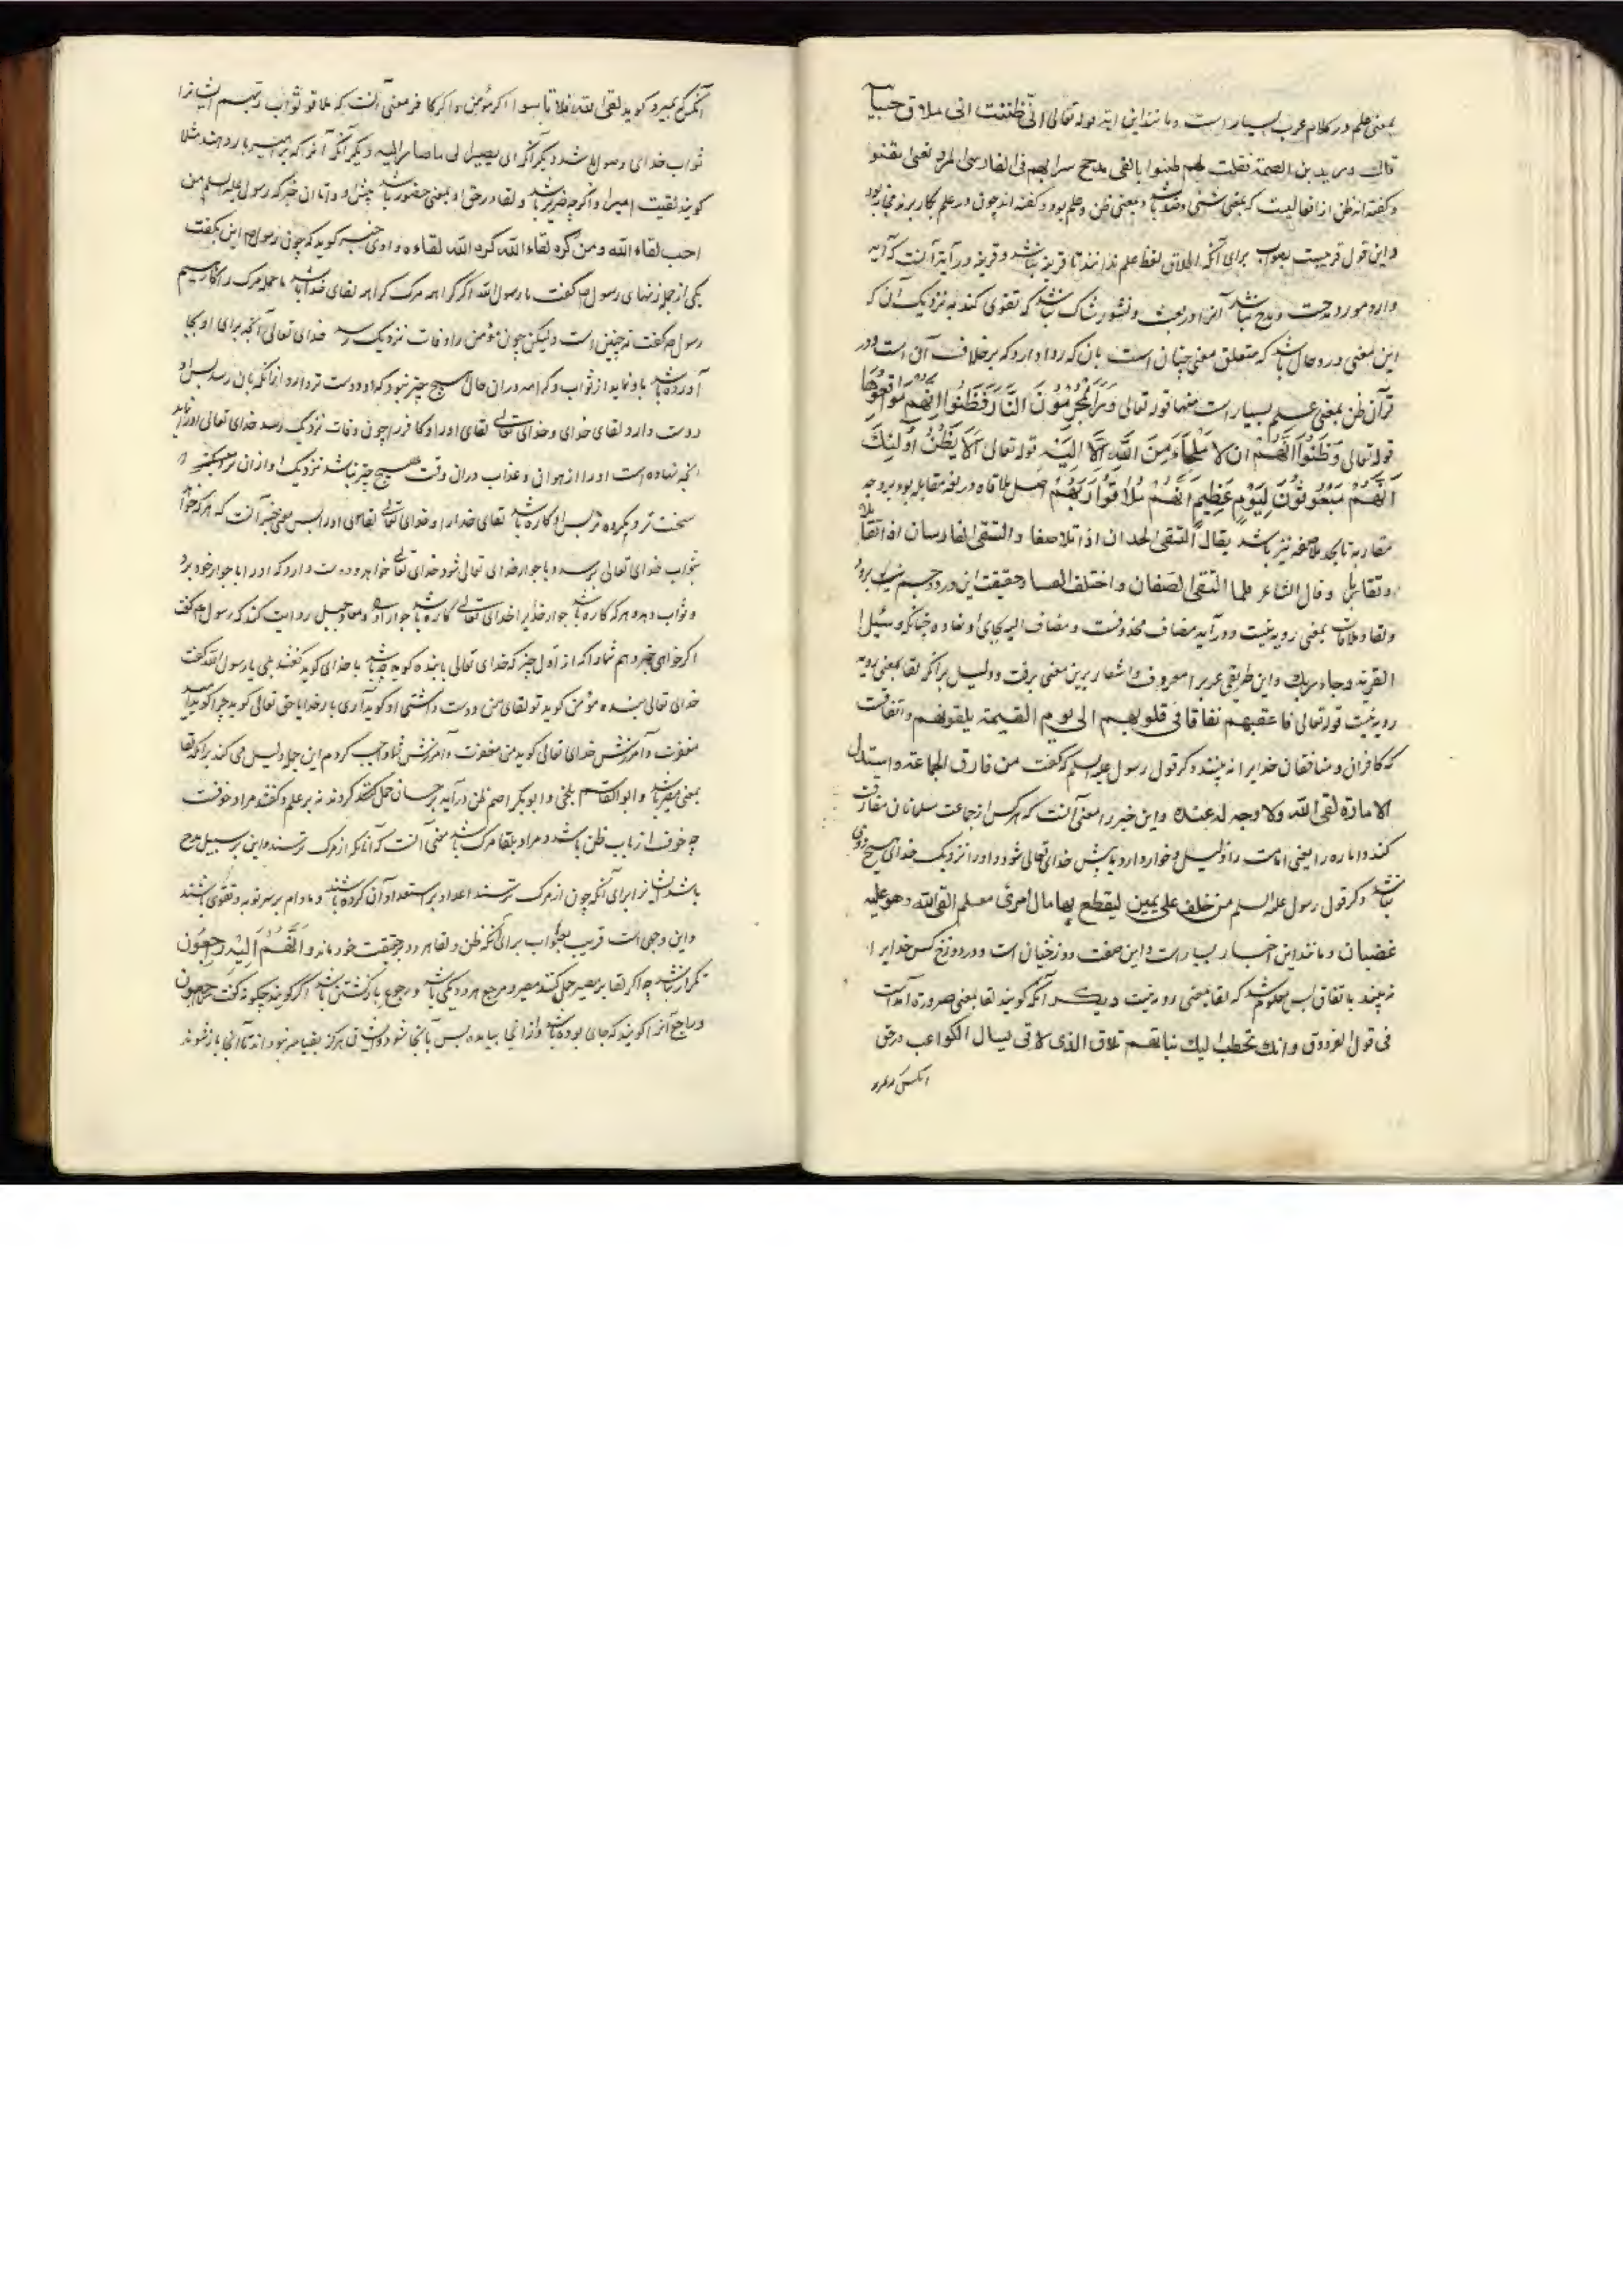 بمعنی علم در کلام عرب بسیار است و مانند این آیه قوله تعالی انی ظننت انی ملاق حسابیه
قال درید بن الصمة فقلت لهم ظنوا بالفی مدجج سراتهم فی الفارسی المسرد یعنی تیقنوا
و گفته‌اند ظن از افعالیست که بمعنی شئی و ضد باشد بمعنی ظن و علم بود و گفته‌اند چون در علم بکار برند مجاز بود
و این قول قریبست بصواب برای آنکه اطلاق لفظ علم ندانند تا قرینه نباشد و قرینه در آیه آنست که آیه
وارد مورد مدحست و مدح نباشد آنرا در بعث و نشور شاک باشد که تقوی کند به نزدیک آن که
این معنی در دو حال باشد که متعلق معنی چنان است بآن که روا دارد که بر خلاف آن است و در
قرآن ظن بمعنی علم بسیار است منها قوله تعالی وَرَأَ الْمُجْرِمُونَ النَّارَ فَظَنُّوا أَنَّهُمْ مُوَاقِعُوهَا
قوله تعالی وَظَنُّوا أَنْ لَا مَلْجَأَ مِنَ اللَّهِ إِلَّا إِلَيْهِ قوله تعالی أَلَا يَظُنُّ أُولَئِكَ
أَنَّهُمْ مَبْعُوثُونَ لِيَوْمٍ عَظِيمٍ أَنَّهُمْ مُلَاقُوا رَبِّهِمْ اصل ملاقاه در لغة مقابله بود بر وجه
مقاربه تا بحد ملاصقه نیز باشد یقال التقی الحدان اذا تلاصقا و التقی الفارسان اذا تقابلا
و تقابلا و قال الشاعر فلما التقی الصفان و اختلف العصا و حقیقت این در دو جسم نیک برود
و لقا و ملاقات بمعنی رویه نیست و در آیه مضاف محذوفست و مضاف الیه بجای او نهاده چنانکه وسئل
القریة وجاء ربك و این طریقی عرب را معروف و اشعار برین معنی برفت و دلیل بر آنکه لقا بمعنی رویه
رویه نیست قوله تعالی فاعقبهم نفاقا فی قلوبهم الی یوم القیمة یلقونه و اتفاقست
که کافران و منافقان خدایرا نه بینند و کر قول رسول علیه السلم که گفت من فارق الجماعة و استذل
الامارة لقی الله ولا وجه له عنده و این خبر را معنی آنست که هر کس از جماعت مسلمانان مفارقت
کند و اماره را یعنی امامت را ذلیل و خوار دارد با پیش خدای تعالی شود و او را نزدیک خدای هیچ روی
نباشد و کر قول رسول علیه السلم من حلف علی یمین لیقطع بها مال امرئ مسلم القی الله وهو علیه
غضبان و مانند این اخبار بسیار است و این صفت دوزخیان است و در دوزخ کس خدایرا
نه بیند باتفاق پس معلوم شد که لقا بمعنی رویه نیست دیگر آنکه گویند لقا بمعنی صرورة آمدست
فی قول الفرزدق وانك تخطب الیك نباتهم تلاق الذی لاقی یسار الکواعب در حق
آنکس که بمیرد
آنکس که بمیرد گوید لقی الله فلاقا سوا اگر مؤمن و اگر کافر معنی آنست که ملاقو ثواب ربهم ایشانرا
ثواب خدای وصول باشد دیگر آنکه ای یصیرا لی ماصار الیه دیگر آنکه آنرا که بر امیر بار دهند مثلا
گویند لقیت امیرا و اگر چه ضریر باشد و لقا در حق او بمعنی حضور باشد و اما آن خبر که رسول علیه السلم من
احب لقاء الله ومن کره لقاء الله کره الله لقاءه راوی خبر گوید که چون رسول ص این بگفت
یکی از جمله زنهای رسول ص گفت یا رسول الله اگر کراهه مرک کراهه لقای خدا باشد ما جمله مرک را کارهیم
رسول ص گفت نه چنین است ولیکن چون مؤمن را وفات نزدیک رسد خدای تعالی آنچه برای او بجا
آورده باشد با و نماید از ثواب و کرامه در آن حال هیچ چیز نبود که او دوست‌تر دارد از آنکه بآن رسد پس او
دوست دارد لقای خدای و خدای تعالی لقای او را و کافر را چون وفات نزدیک رسد خدای تعالی او را نماید
آنچه نهاده است او را از هوان و عذاب در آن وقت هیچ چیز نباشد نزدیک او از آن
سخت‌تر و مکروه‌تر پس او کاره باشد لقای خدا را و خدای تعالی لقای او را پس معنی خبر آنست که هر که خواهد
بثواب خدای تعالی برسد و با جوار خدای تعالی شود خدای تعالی خواهد و دوست دارد که او را با جوار خود برد
و ثواب دهد و هر که کاره باشد جوار خدایرا خدای تعالی کاره باشد جوار او را و معاذ جبل روایت کند که رسول ص گفت
اگر خواهی خبر دهم شما را که از اول چیز که خدای تعالی با بنده گوید چه باشد با خدای گوید گفتند بلی یا رسول الله گفت
خدای تعالی بنده مؤمن گوید تو لقای من دوست داشتی او گوید آری بار خدایا حق تعالی گوید چرا گوید امید
مغفرت و آمرزش خدای تعالی گوید من مغفرت و آمرزش شما واجب کردم این جمله دلیل می کند بر آنکه لقا
بمعنی مصیر باشد و ابوالقاسم بلخی و ابوبکر اصم ظن در آیه بر حسبان حمل کردند نه بر علم و گفتند مراد خوفست
چه خوف از باب ظن باشد و مراد بلقا مرک باشد معنی آنست که آنانکه از مرک ترسند و این بر سبیل مدح
باشد ایشانرا برای آنکه چون از مرک ترسند اعداد بر استعداد آن کرده باشند و مادام بر سر توبه و تقوی باشند
و این وجهی است قریب بصواب برای آنکه ظن و لقا هر دو بر حقیقت خود ماند وَأَنَّهُمْ إِلَيْهِ رَاجِعُونَ
تکرار نباشد چه اگر لقا بر مصیر حمل کنند مصیر و مرجع هر دو یکی باشد و رجوع بازگشتن باشد اگر گویند چگونه گفت راجعون
و راجع آنرا گویند که جای بوده باشد و از آنجا بیامده پس بآنجا شود و ایشان هرگز بقیامه نبوده‌اند تا آنجا باز شوند